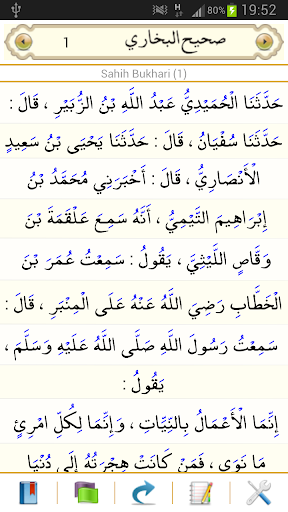 H 19:52
صحيح البخاري 1
Sahih Bukhari (1)
حَدَّثَنَا الْحُمَيْدِيُّ عَبْدُ اللَّهِ بْنُ الزُّبَيْرِ ، قَالَ :
حَدَّثَنَا سُفْيَانُ ، قَالَ : حَدَّثَنَا يَحْيَى بْنُ سَعِيدٍ
الْأَنْصَارِيُّ ، قَالَ : أَخْبَرَنِي مُحَمَّدُ بْنُ
إِبْرَاهِيمَ التَّيْمِيُّ ، أَنَّهُ سَمِعَ عَلْقَمَةَ بْنَ
وَقَّاصٍ اللَّيْثِيَّ ، يَقُولُ : سَمِعْتُ عُمَرَ بْنَ
الْخَطَّابِ رَضِيَ اللَّهُ عَنْهُ عَلَى الْمِنْبَرِ ، قَالَ :
سَمِعْتُ رَسُولَ اللَّهِ صَلَّى اللَّهُ عَلَيْهِ وَسَلَّمَ ،
يَقُولُ :
إِنَّمَا الْأَعْمَالُ بِالنِّيَّاتِ ، وَإِنَّمَا لِكُلِّ امْرِئٍ
مَا نَوَى ، فَمَنْ كَانَتْ هِجْرَتُهُ إِلَى دُنْيَا